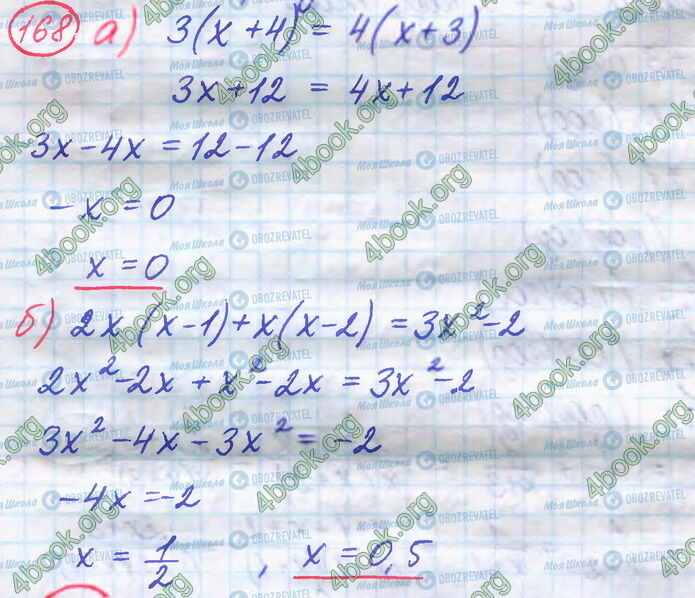 168 а) 3(x+4) = 4(x+3)
3x+12 = 4x+12
3x-4x=12-12
-x=0
x=0
б) 2x(x-1)+x(x-2)=3x²-2
2x²-2x+x²-2x=3x²-2
3x²-4x-3x²=-2
-4x=-2
x=1/2, x=0,5
4book.org
Моя Школа OBOZREVATEL